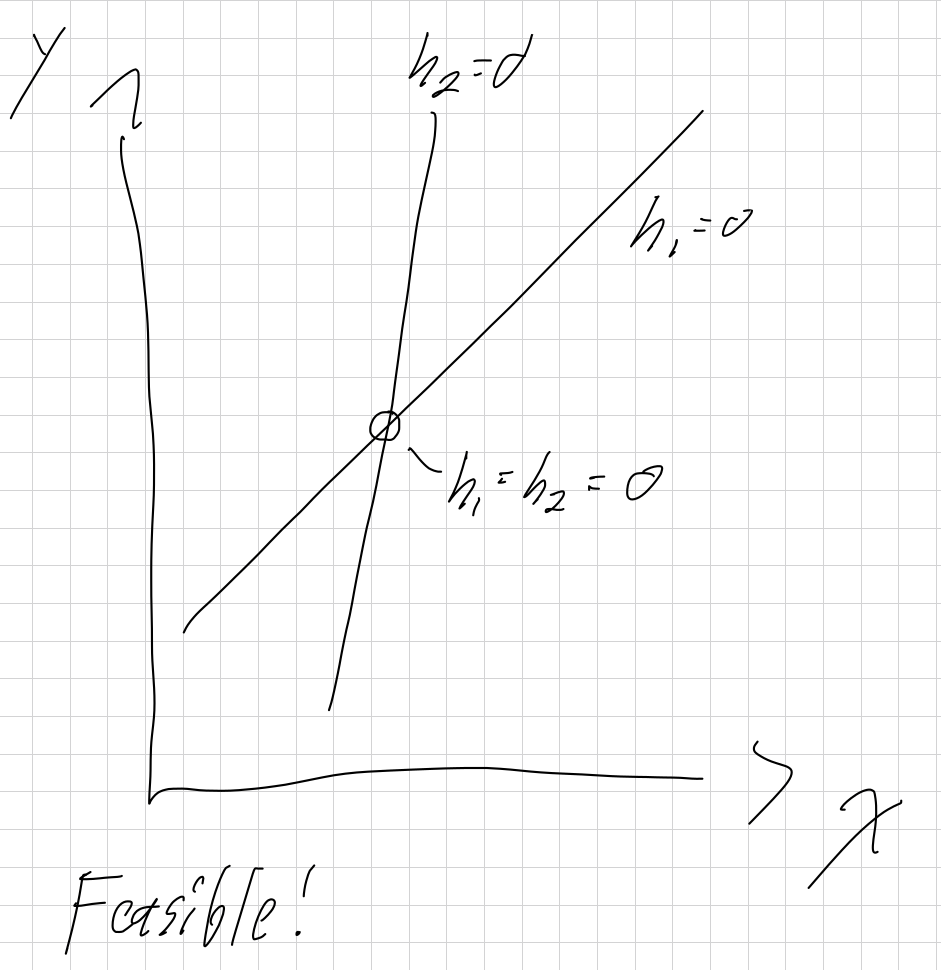 y
h₂=0
h₁=0
h₁=h₂=0
x
Feasible!